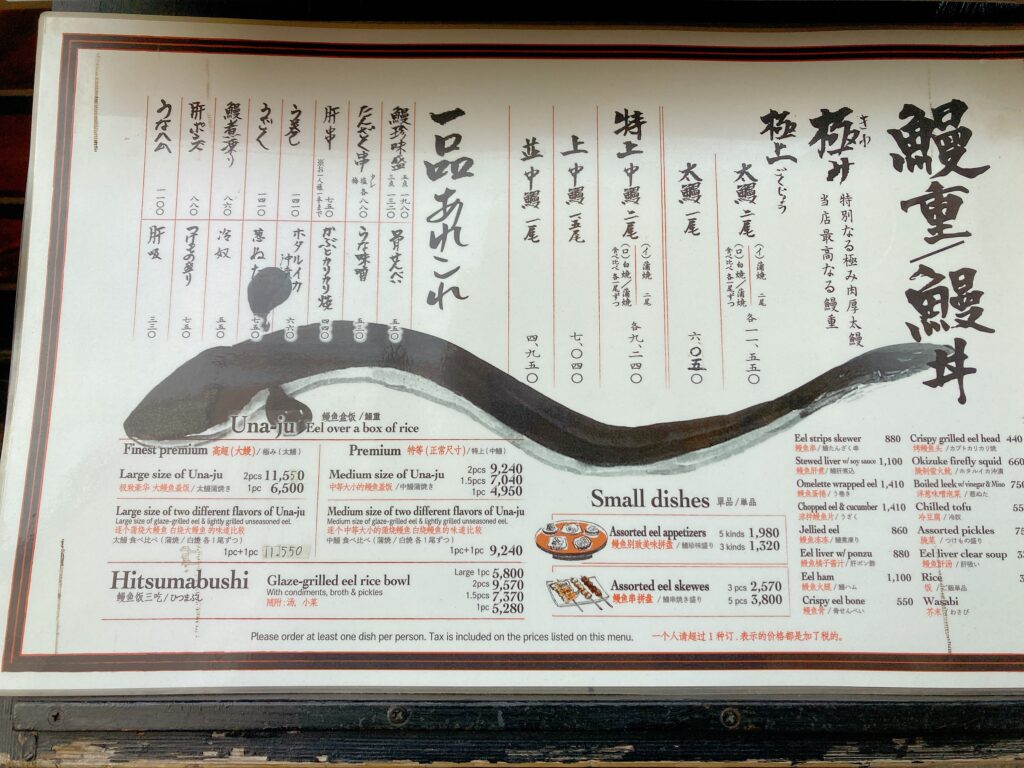 鰻重/鰻丼
極み
きわ
特別なる極み肉厚太鰻
当店最高なる鰻重
極上ごくじょう
太鰻 二尾
(イ)蒲焼 二尾
(ロ)白焼/蒲焼
食べ比べ 各一尾ずつ
各一一、五五〇
太鰻 一尾
六、〇五〇
特上中鰻 二尾
(イ)蒲焼 二尾
(ロ)白焼/蒲焼
食べ比べ 各一尾ずつ
各九、二四〇
上中鰻 一、五尾
七、〇四〇
並中鰻 一尾
四、九五〇
一品あれこれ
鰻珍味盛
五点 一九八〇
三点 一三二〇
たんざく串
タレ
塩
梅
各八八〇
肝串
※お一人様一本まで
七五〇
うまき
一四一〇
うざく
一四一〇
鰻煮凍り
八六〇
肝ポン酢
八八〇
うなハム
一一〇〇
骨せんべい
五五〇
うな味噌
五三〇
かぶとカリカリ焼
四四〇
ホタルイカ
六六〇
葱ぬた
七五〇
冷奴
五五〇
つけもの盛り
七五〇
肝吸
三三〇
Una-ju 鳗鱼盒饭 / 鰻重
Eel over a box of rice
Finest premium 高超 (大鳗) / 極み (太鰻)
Large size of Una-ju 2pcs 11,550
极致豪华 大鳗鱼盒饭 / 太鰻蒲焼き 1pc 6,500
Large size of two different flavors of Una-ju
Large size of glaze-grilled eel & lightly grilled unseasoned eel.
逐个蒲烧大鳗鱼 白烧大鳗鱼的味道比较
太鰻 食べ比べ (蒲焼 / 白焼 各1尾ずつ)
1pc+1pc 11550
Premium 特等 (正常尺寸) / 特上 (中鰻)
Medium size of Una-ju 2pcs 9,240
中等大小的鳗鱼盒饭 / 中鰻蒲焼き 1.5pcs 7,040
1pc 4,950
Medium size of two different flavors of Una-ju
Medium size of glaze-grilled eel & lightly grilled unseasoned eel.
逐个中等大小的蒲烧鳗鱼 白烧鳗鱼的味道比较
中鰻 食べ比べ (蒲焼 / 白焼 各1尾ずつ)
1pc+1pc 9,240
Hitsumabushi
鳗鱼饭三吃 / ひつまぶし
Glaze-grilled eel rice bowl
With condiments, broth & pickles
随附:汤, 小菜
Large 1pc 5,800
2pcs 9,570
1.5pcs 7,370
1pc 5,280
Small dishes 單品 / 単品
Assorted eel appetizers 5 kinds 1,980
鳗鱼别致美味拼盘 / 鰻珍味盛り 3 kinds 1,320
Assorted eel skewes 3 pcs 2,570
鳗鱼串拼盘 / 鰻串焼き盛り 5 pcs 3,800
Eel strips skewer 880
鳗鱼串 / 鰻たんざく串
Stewed liver w/ soy sauce 1,100
鳗鱼肝煮 / 鰻肝煮込み
Omelette wrapped eel 1,410
鳗鱼蛋捲 / う巻き
Chopped eel & cucumber 1,410
凉拌鳗鱼片 / うざく
Jellied eel 860
鳗鱼冻冻 / 鰻煮凍り
Eel liver w/ ponzu 880
鳗鱼橘子醬汁 / 肝ポン酢
Eel ham 1,100
鳗鱼火腿 / 鰻ハム
Crispy eel bone 550
鳗鱼骨 / 骨せんべい
Crispy grilled eel head 440
烤鳗鱼头 / カブトカリカリ焼
Okizuke firefly squid 660
腌制萤火鱿 / ホタルイカ沖漬
Boiled leek w/ vinegar & Miso 750
洋葱味噌泡菜 / 葱ぬた
Chilled tofu 55
冷豆腐 / 冷奴
Assorted pickles 75
腌菜 / つけもの盛り
Eel liver clear soup 33
鳗鱼肝汤 / 肝吸い
Rice 3
饭 / ご飯単品
Wasabi
芥末 / わさび
Please order at least one dish per person. Tax is included on the prices listed on this menu. 一个人请超过1种订.表示的价格都是加了税的。